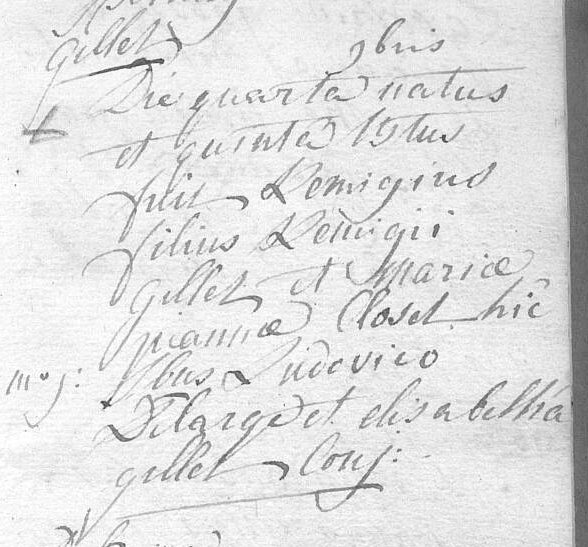 gillet
9bris
Die quarta natus
et quinta bstus
fuit Remigius
filius Remigii
gillet et Mariæ
joannæ Closet hic
sbus Ludovico
Delarge et elisabetha
gillet Conj: